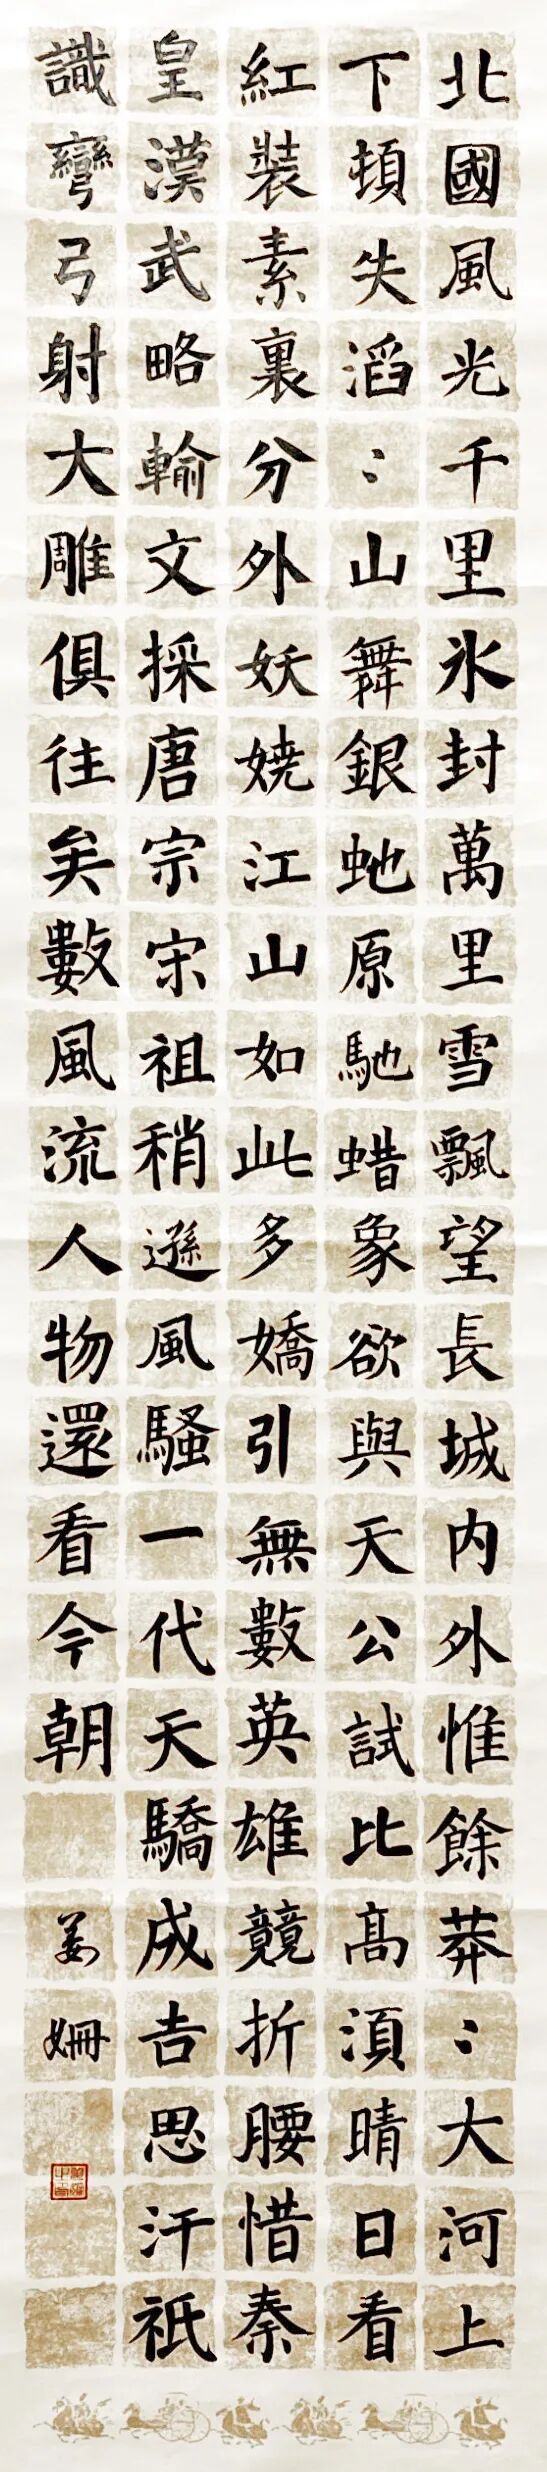 北國風光千里氷封萬里雪飄望長城内外惟餘莽〻大河上
下頓失滔〻山舞銀虵原馳蜡象欲與天公試比髙湏晴日看
紅裝素裏分外妖嬈江山如此多嬌引無數英雄競折腰惜秦
皇漢武略輸文採唐宗宋祖稍遜風騷一代天驕成吉思汗祇
識彎弓射大雕俱往矣數風流人物還看今朝
姜姍